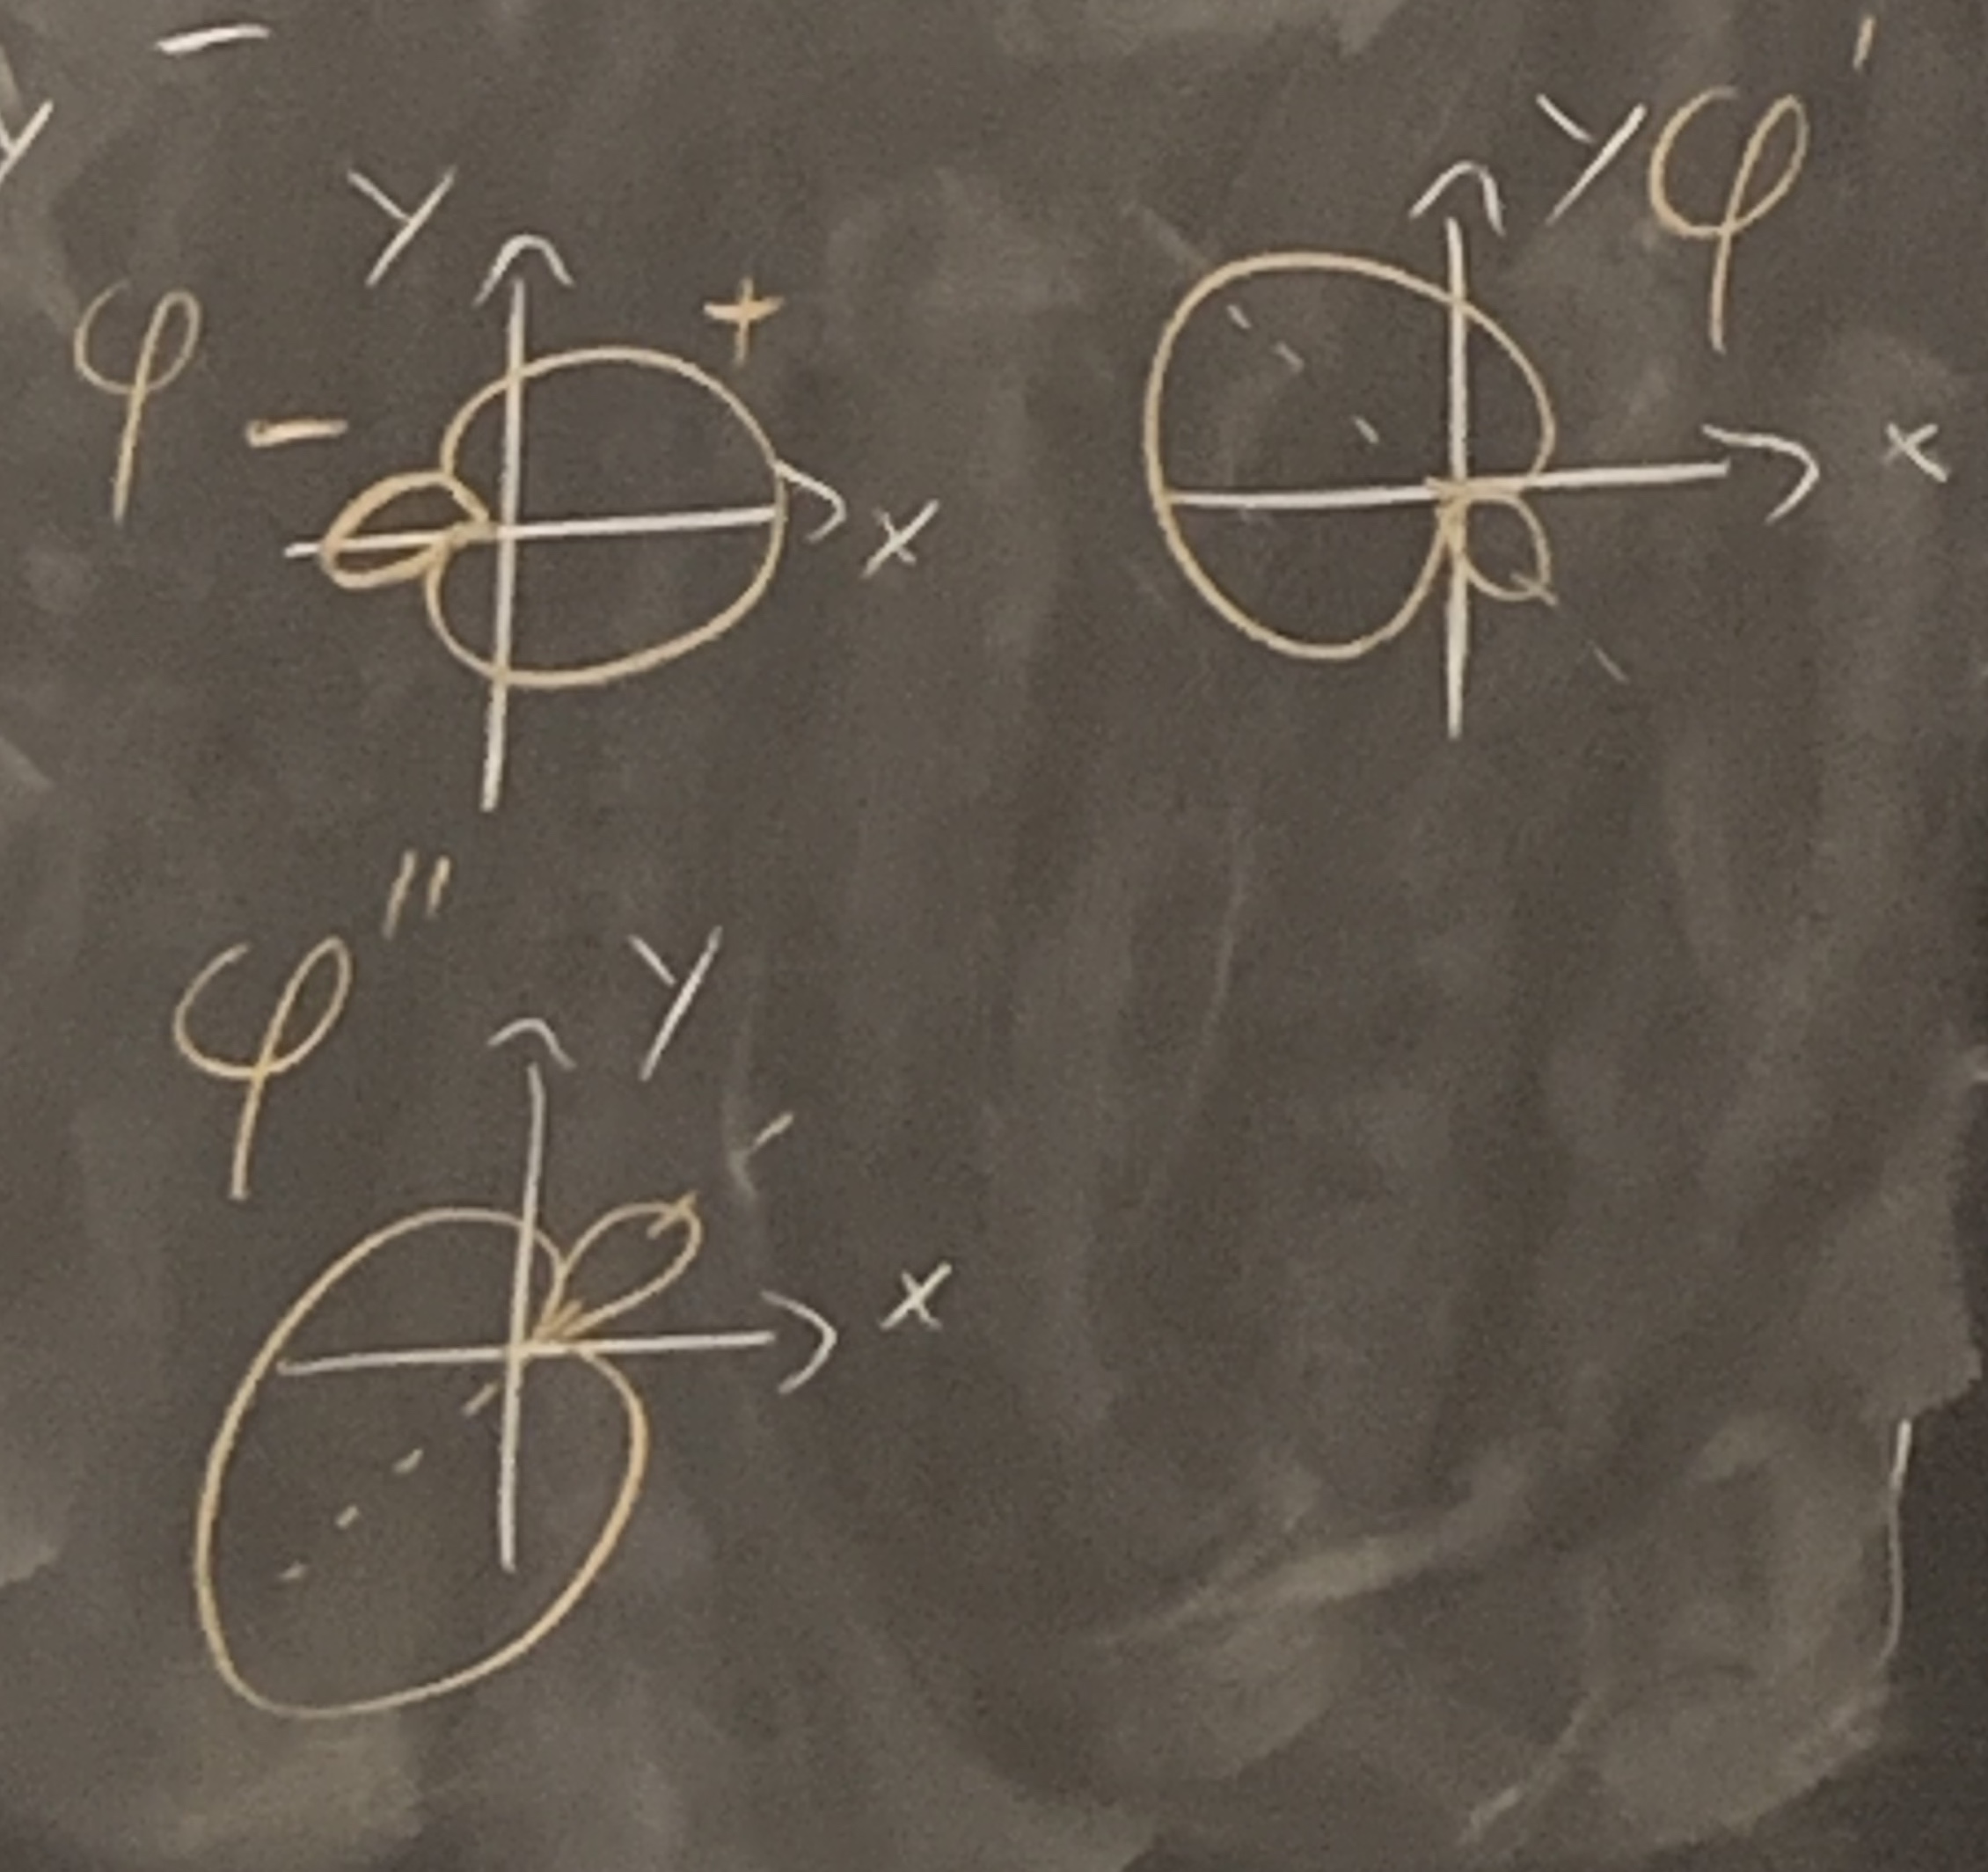 y -
y
φ - +
x
y φ'
x
φ"
y
x